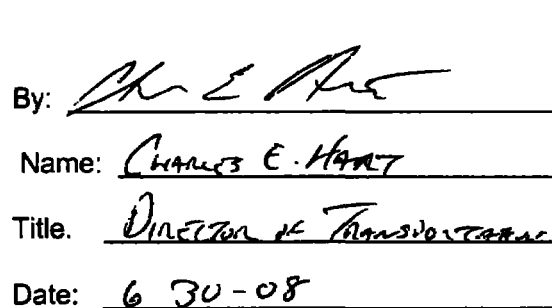 By: Chs E Hart
Name: CHARLES E. HART
Title. DIRECTOR OF TRANSPORTATION
Date: 6 30-08